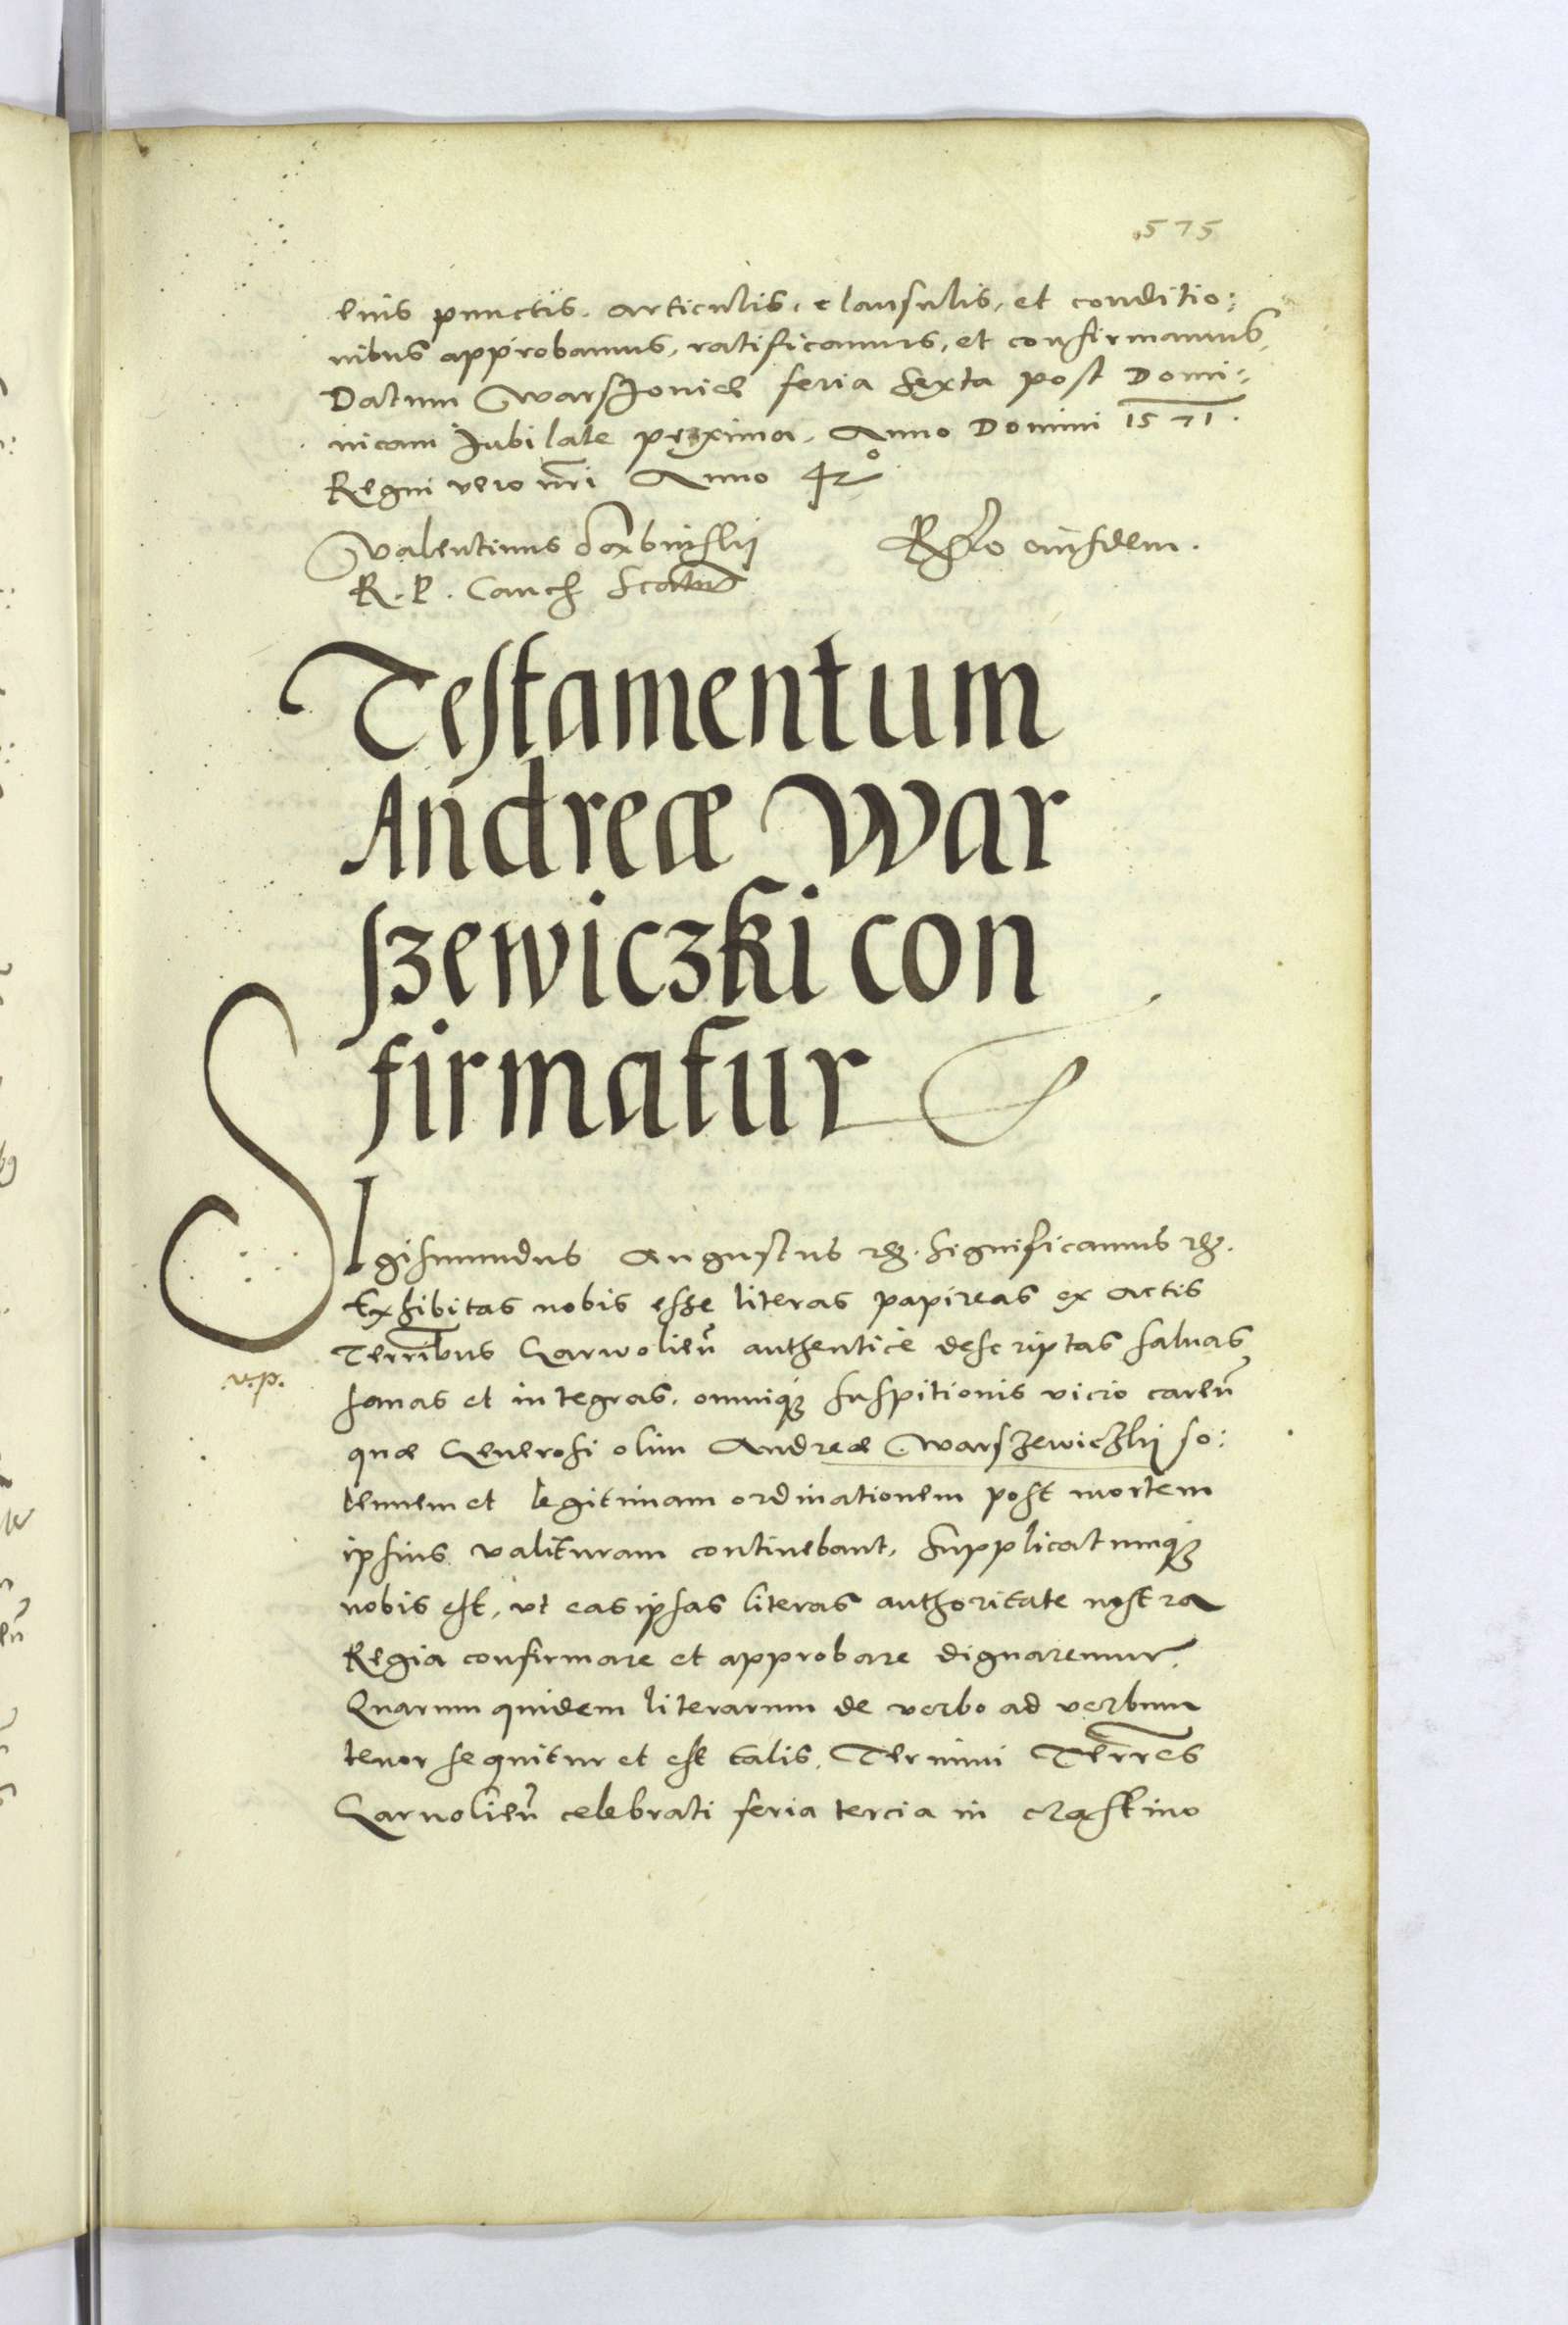 575
eius punctis. articulis, clausulis, et conditio:
nibus approbamus, ratificamus, et confirmamus,
Datum Warszoviæ feria sexta post Domi:
nicam Jubilate proxima. Anno Domini 1571.
Regni vero nr̃i Anno 42°
Valentinus Dąmbinsky Rel̃o eiusdem.
R. P. Canch
Testamentum
Andreæ War
szewiczki con
firmatur
Sigismundus Augustus etc. Significamus etc.
Exhibitas nobis esse literas papireas ex actis
Terrr̃ibus Garwolieñ authentice descriptas salvas
v.p.
sanas et integras, omniq; suspitionis vicio careñ
quæ Generosi olim Andreæ Warszewiczky so:
lennem et legitimam ordinationem post mortem
ipsius valituram continebant, supplicatumq;
nobis est, vt eas ipsas literas authoritate nostra
Regia confirmare et approbare dignaremur.
Quarum quidem literarum de verbo ad verbum
tenor sequitur et est talis. Termini Terr̃es
Garvolieñ celebrati feria tercia in crastino